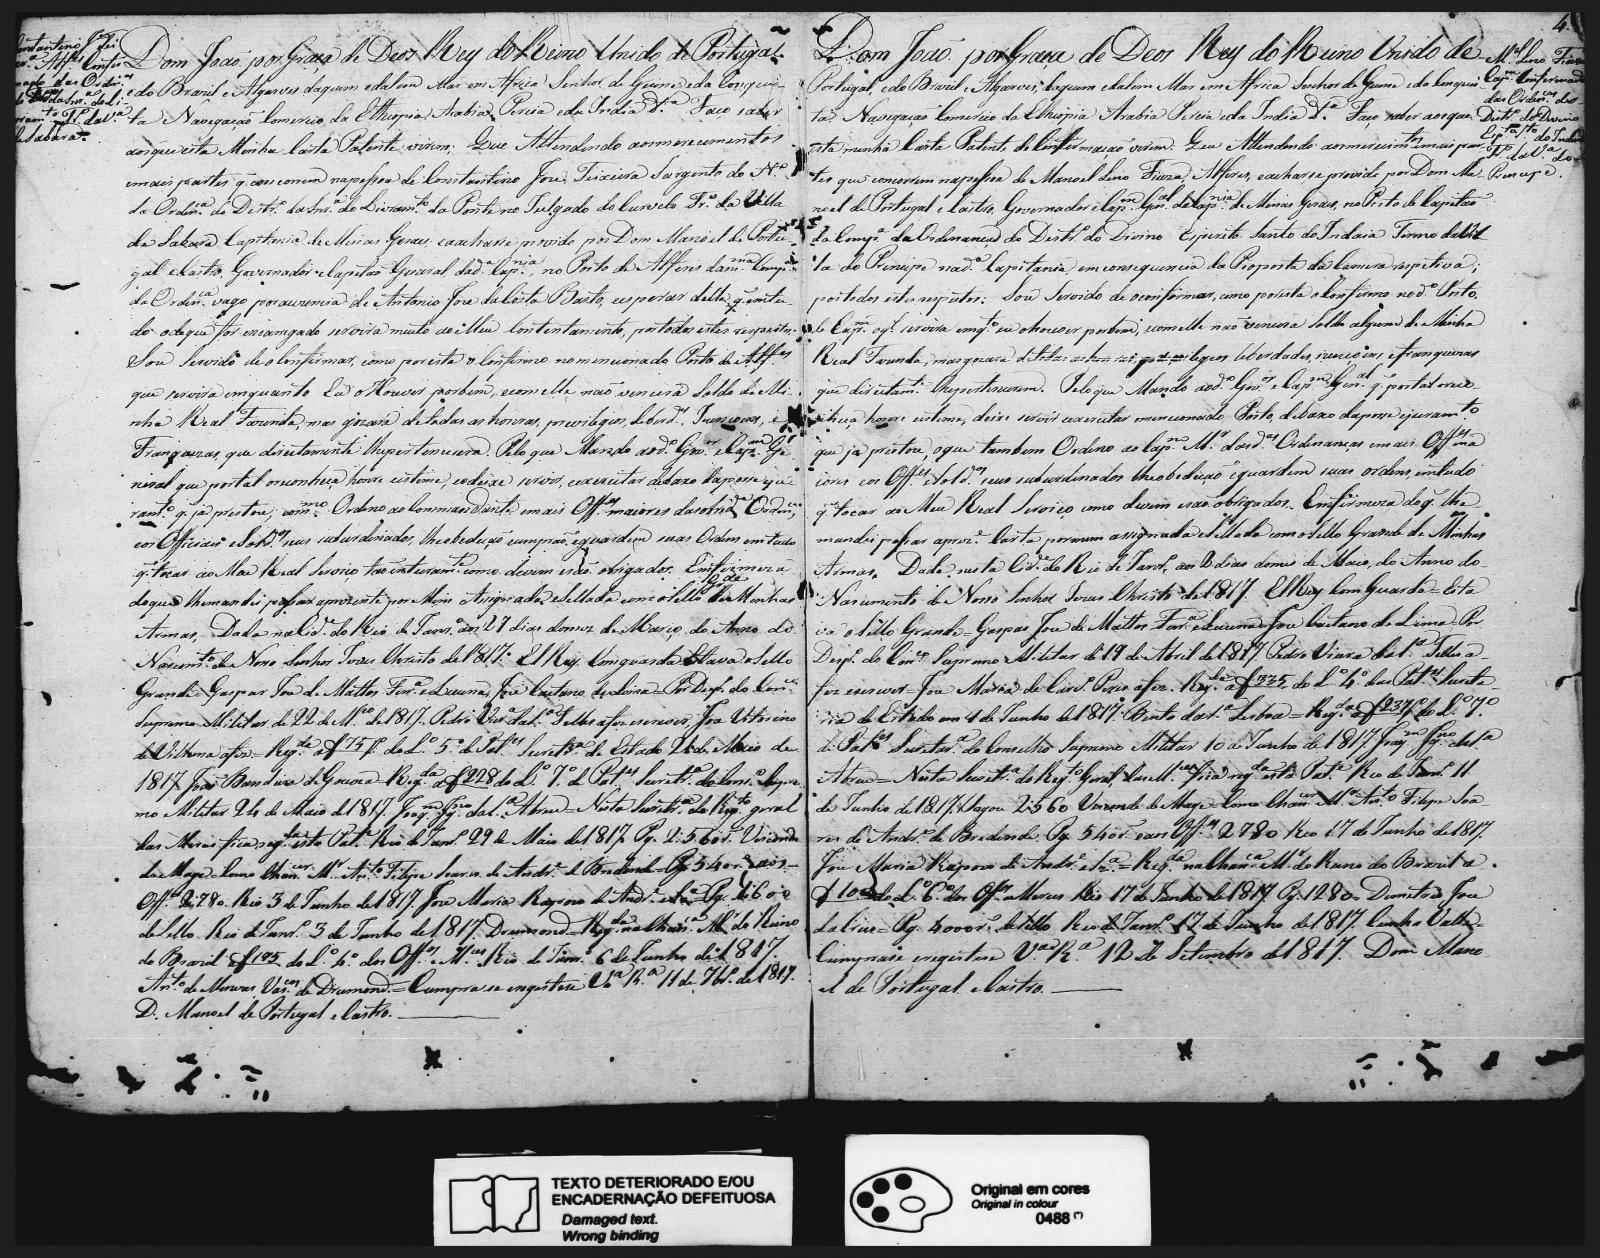 Dom João por Graça de Deos Rey do Reino Unido de Portugal
e do Brazil e Algarves daquem e dalem Mar em Africa Senhor de Guine e da Conquis-
ta Navegação Comercio da Ethiopia Arabia Percia e da India &.ª Faço saber
aos que esta Minha Carta Patente virem: Que Attendendo aos merecimentos
e mais partes q. concorrem na pessoa de Constantino Joze Teixeira Sargento do N.º
da Orden.ª do Destr.º da Snr.ª do Livram.to da Ponte no Julgado do Curvelo Tr.º da Villa
de Sabará Capitania de Minas Geraes e acharse provido por Dom Manoel de Portu-
gal e Castro, Governador e Capitão General da d.ª Cap.nia no Posto de Alferes da m.ma Comp.ª
da Orden.ça vago por auzencia de Antonio Joze da Costa Basto, e esperar delle q. em tu-
do o de que for encarregado servirá muito ao Meu Contentamento, por todos estes respeitos:
Sou Servido de o Confirmar, como por esta o Confirmo no mencionado Posto de Alf.es
que servirá emquanto Eu o houver por bem, e com elle não vencerá Soldo de Mi-
nha Real Fazenda, mas gozará de todas as honras, previlegios, liberd.es Izençoens, e
Franquezas, que direitamente lhe pertencerem. Pelo que Mando ao d.º Gov.or e Cap.m Ge-
neral que por tal o conheça honre e estime, e o deixe servir, e exercitar debaxo da posse e ju-
ram.to q. ja prestou; como Ordeno ao Commandante e mais Off.es maiores da sobred.ª Orden.ça
e os Officiaes e Sold.os seus subordinados, lhe obedeção cumprão, e guardem suas Ordens em tudo
q. tocar ao Meu Real Serviço tão inteiram.te como devem e são obrigados. Em firmeza
do que lhe mandei passar a prezente por Mim Assignada e Sellada com o Sello Gr.de de Minhas
Armas. Dada na Cid.e do Rio de Janr.º aos 27 dias do mez de Março do Anno do
Nascim.to de Nosso Senhor Jezus Christo de 1817. ElRey Com guarda = Estava o Sello
Grande = Gaspar Joze de Mattos Ferr.ª e Lucena Joze Caetano de Lima = Por Desp.º do Con.º
Supremo Militar de 22 de M.ço de 1817. Pedro Vieira da S.ª Telles a fez escrever, Joze Vitorino
de Ultima a fez = Reg.da a f 75 do L.º 5.º de Pat.es Secretr.ª de Estado 21 de Maio de
1817 João Bandeira de Gouvea = Reg.da a f 228 do L.º 7.º de Pat.es Secret.ª do Cons.º Supre-
mo Militar 24 de Maio de 1817. Joaq.m Joze da S.ª Abreu = Nesta Secret.ª do Reg.to geral
das Merces fica reg.da esta Pat.e Rio de Janr.º 29 de Maio de 1817. Pg. 2:560 r.s Visconde
de Maje = Como Chan.er Mr. Ant.º Felipe Soares de Andr.e de Brederode Pg 540 r.s e aos
Off.es 2:780. Rio 3 de Junho de 1817. Joze Maria Rapozo de Andr.e
de Sello. Rio de Janr.º 3 de Junho de 1817. Drumond = Reg.da na Chan.ª Mr. do Reino
do Brazil a f 195 do L.º 6.º dos Off.es e M.ces Rio de Janr.º 6 de Junho de 1817.
Ant.º de Menezes Vas.cos de Drumond = Cumpra se e registe se V.ª R.ª 11 de 7br.º de 1817.
D. Manoel de Portugal e Castro.
4
Dom João por Graça de Deos Rey do Reino Unido de
Portugal, e do Brazil e Algarves, daquem e dalem Mar em Africa Senhor de Guine e da Conquis-
ta Navegação Comercio da Ethiopia Arabia Percia e da India &.ª Faço saber aos que
esta minha Carta Patente de Confirmação virem: Que Attendendo aos merecim.tos e mais par-
tes que concorrem na pessoa de Manoel Lino Fiuza, Alferes, e acharse provido por Dom Ma-
noel de Portugal e Castro, Governador e Cap.m Gen.al da Cap.nia de Minas Geraes, no Posto de Capitão
da Comp.ª da Ordenança do Destr.º do Divino Espirito Santo do Indaia Termo da Vil-
la do Principe na d.ª Capitania em consequencia da Proposta da Camera respetiva;
por todos estes respeitos: Sou Servido de o confirmar, como por esta o Confirmo no d.º Posto
de Cap.m o q.l servirá emq.to eu o houver por bem, e com elle não vencerá Soldo algum de Minha
Real Fazenda, mas gozará de todas as honras previlegios liberdades, izençoens e franquezas
que direitam.te lhe pertencerem. Pelo que Mando ao d.º Gov.or e Cap.m Gen.al q. por tal o co-
nheça honre e estime, deixe servir e exercitar o mencionado Posto debaxo da posse e juram.to
que ja prestou, o que tambem Ordeno ao Cap.m M.r das d.as Ordenanças e mais Off.es ma-
iores e os Off.es e Sold.os seus subordinados lhe obedeção e guardem suas ordens, em tudo
q. tocar ao Meu Real Serviço como devem e são obrigados. Em firmeza do q. lhe
mandei passar a prez.e Carta por mim assignada e Sellada com o Sello Grande de Minhas
Armas. Dada nesta Cid.e do Rio de Janr.º aos 8 dias do mez de Maio, do Anno do
Nascimento de Nosso Senhor Jezus Christo de 1817. ElRey Com Guarda = Esta-
va o Sello Grande = Gaspar Joze de Mattos Ferr.ª e Lucena = Joze Caetano de Lima = Por
Desp.º do Con.º Supremo Militar de 19 de Abril de 1817. Pedro Vieira da S.ª Telles a
fez escrever = Joze Maria de Carv.º a fez. Reg.da a f 335 do L.º 4.º das Pat.es Secreta-
ria de Estado em 4 de Junho de 1817. Bento da S.ª Lisboa = Reg.da a f 237 do L.º 7.º
de Pat.es Secretar.ª do Conselho Supremo Militar 10 de Junho de 1817. Joaq.m Joze da S.ª
Abreu = Nesta Secret.ª do Reg.to Geral das M.ces fica reg.da esta Pat.e Rio de Janr.º 11
de Junho de 1817. Pagou 2:560 Visconde de Maje Como Chan.er Mr. Ant.º Felipe Soa-
res de Andr.e de Brederode Pg 540 r.s e aos Off.es 2780 Rio 17 de Junho de 1817.
Joze Maria Rapozo de Andr.e e Sz.ª = Reg.da na Chan.ª M.r do Reino do Brazil a
f 100 do L.º 6.º dos Off.es e Merces Rio 17 de Junho de 1817. Pg. 1280 = Demetrio Joze
da Cruz = Pg. 4000 r.s de Sello Rio de Janr.º 17 de Junho de 1817. Cunha Valle =
Cumprase e registese V.ª R.ª 12 de Setembro de 1817. Dom Mano-
el de Portugal e Castro.
TEXTO DETERIORADO E/OU
ENCADERNAÇÃO DEFEITUOSA
Damaged text.
Wrong binding
Original em cores
Original in colour
0488 (*)